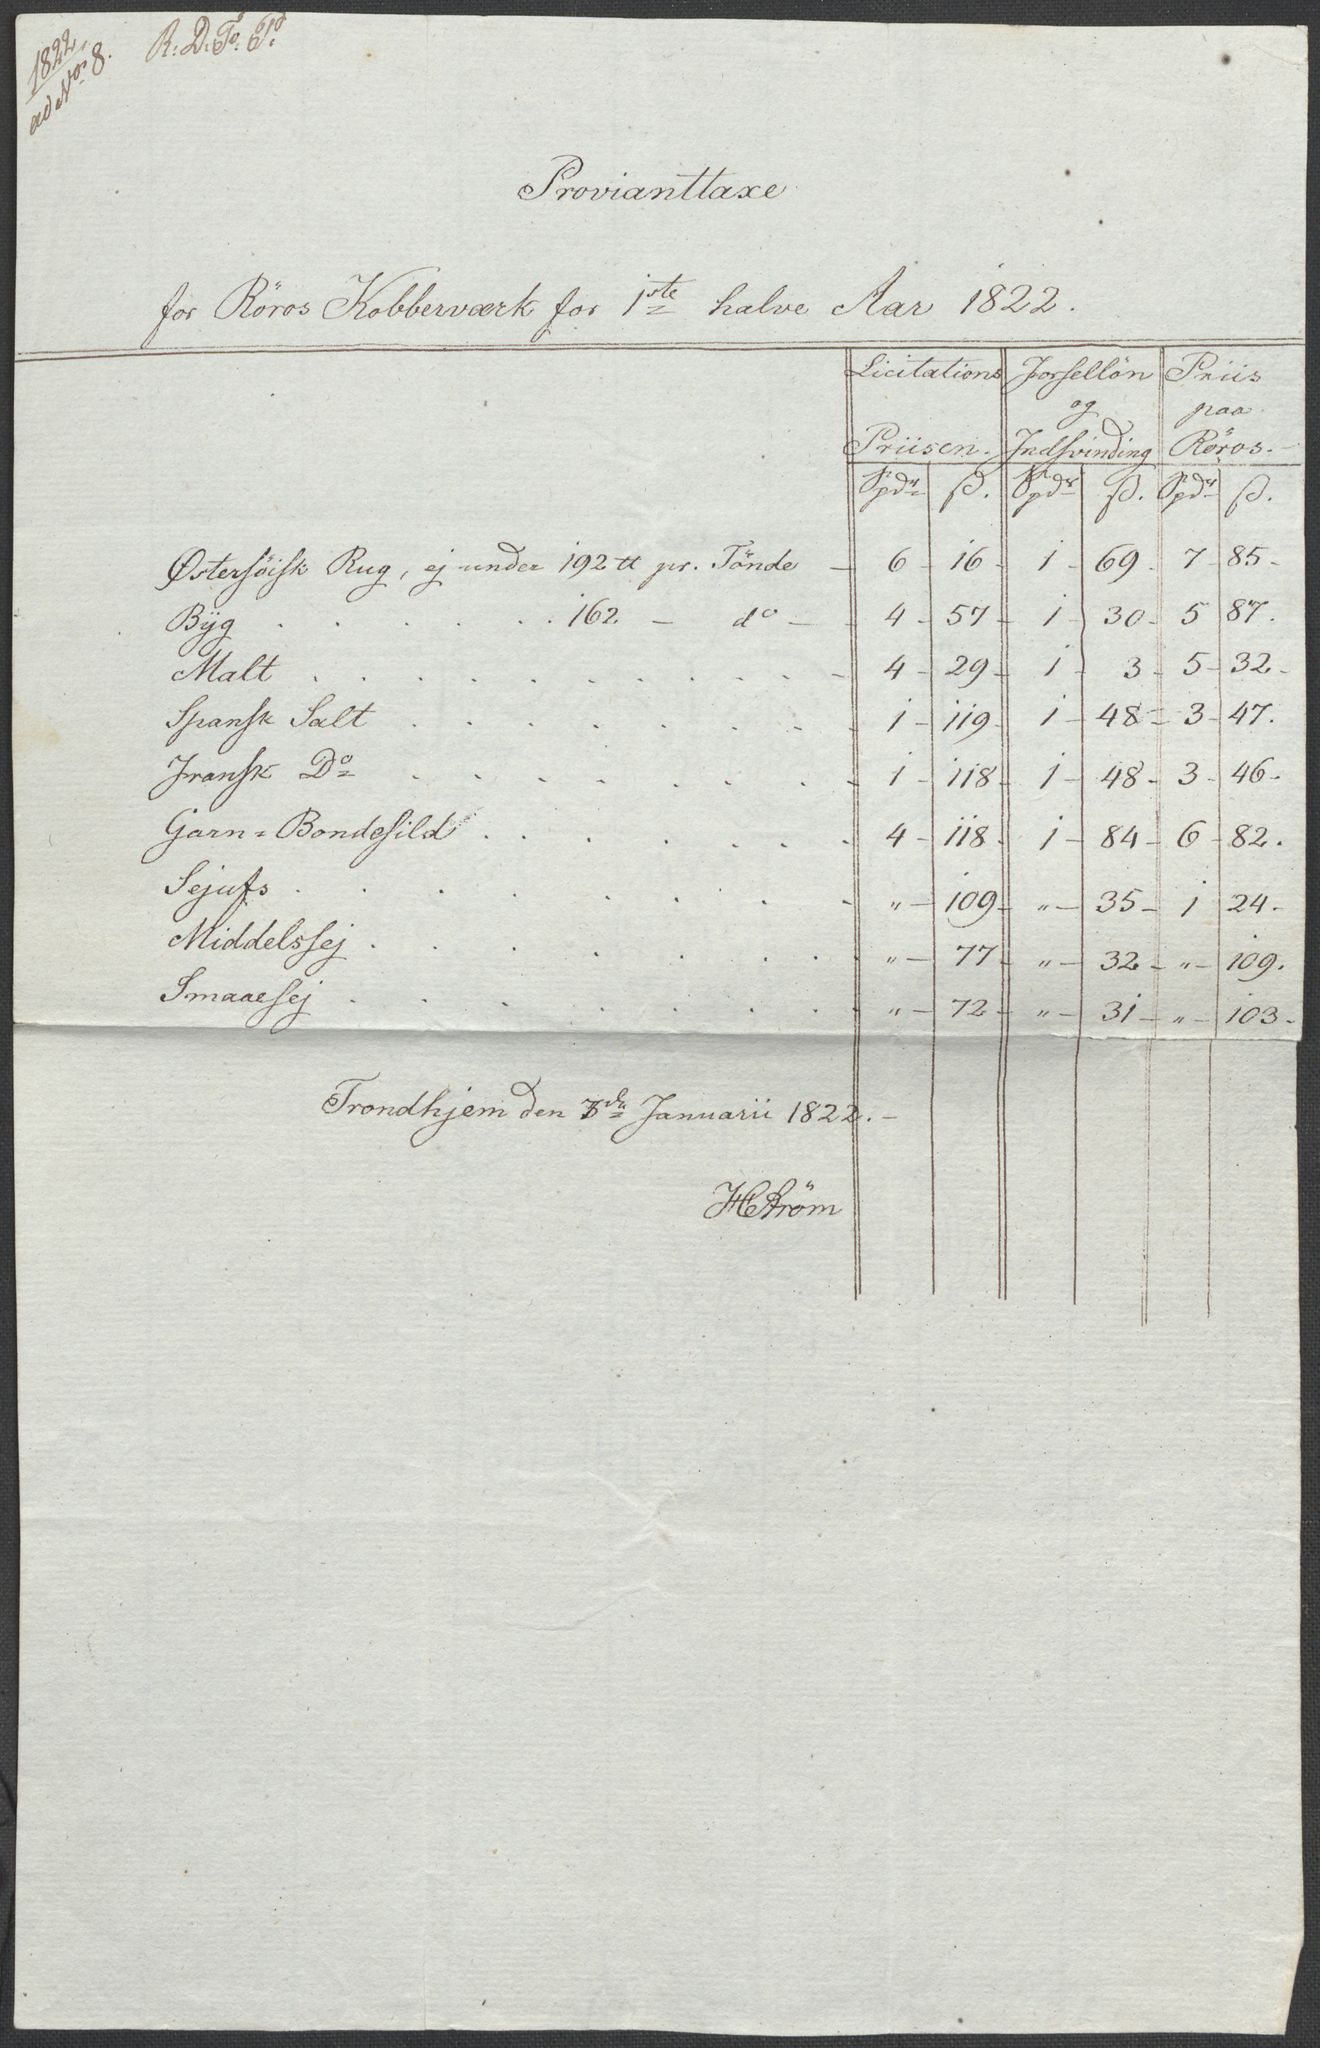 1822.
ad No 8.
R: D: To: Td
Provianttaxe
for Röros Kobberværk for 1ste halve Aar 1822.
Licitations Priisen. Forsellön og Indsvinding Priis paa Röros.
Spdr ß. Spdr ß. Spdr ß.
Østersöisk Rug, ej under 192 tt pr. Tönde – 6 – 16 – 1 – 69 – 7 – 85 –
Byg . . . . . . 162 – do – 4 – 57 – 1 – 30 – 5 87.
Malt . . . . . . . . . . – 4 – 29 – 1 – 3 – 5 – 32 –
Spansk Salt . . . . . . . – 1 – 119 – 1 – 48 – 3 – 47.
Fransk Do . . . . . . . – 1 – 118 – 1 – 48 – 3 – 46 –
Garn = Bondesild . . . . . . – 4 – 118 – 1 – 84 – 6 – 82.
Sejufs . . . . . . . – „ – 109 – „ – 35 – 1 24 –
Middelssej . . . . . . . „ – 77 – „ – 32 – „ – 109.
Smaaesej . . . . . . . „ – 72 – „ – 31 – „ – 103 –
Trondhjem den 3de Januarii 1822. –
HStröm